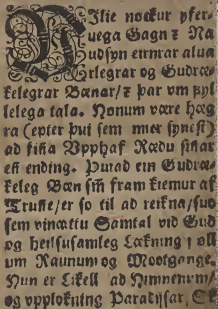 Vilie nockur yfer-
vega Gagn z Na
udsyn einrar alua
rlegrar og Gudræ-
kelegrar Bænar/ z þar vm þyl
lelega tala. Honum være hæg
ra (epter þui sem mier synest)
ad fiña Vpphaf Rædu siñar
eff ending. Þuiad ein Gudræ-
keleg Bæn sem fram kiemur af
Truñe/ er so til ad reikna/ suo
sem vinattu Samtal vid Gud
og heilsusamleg Lækning i oll
um Raunum og Mootgange.
Hun er Likell ad Himnenum/
og vpplokning Paradijsar,